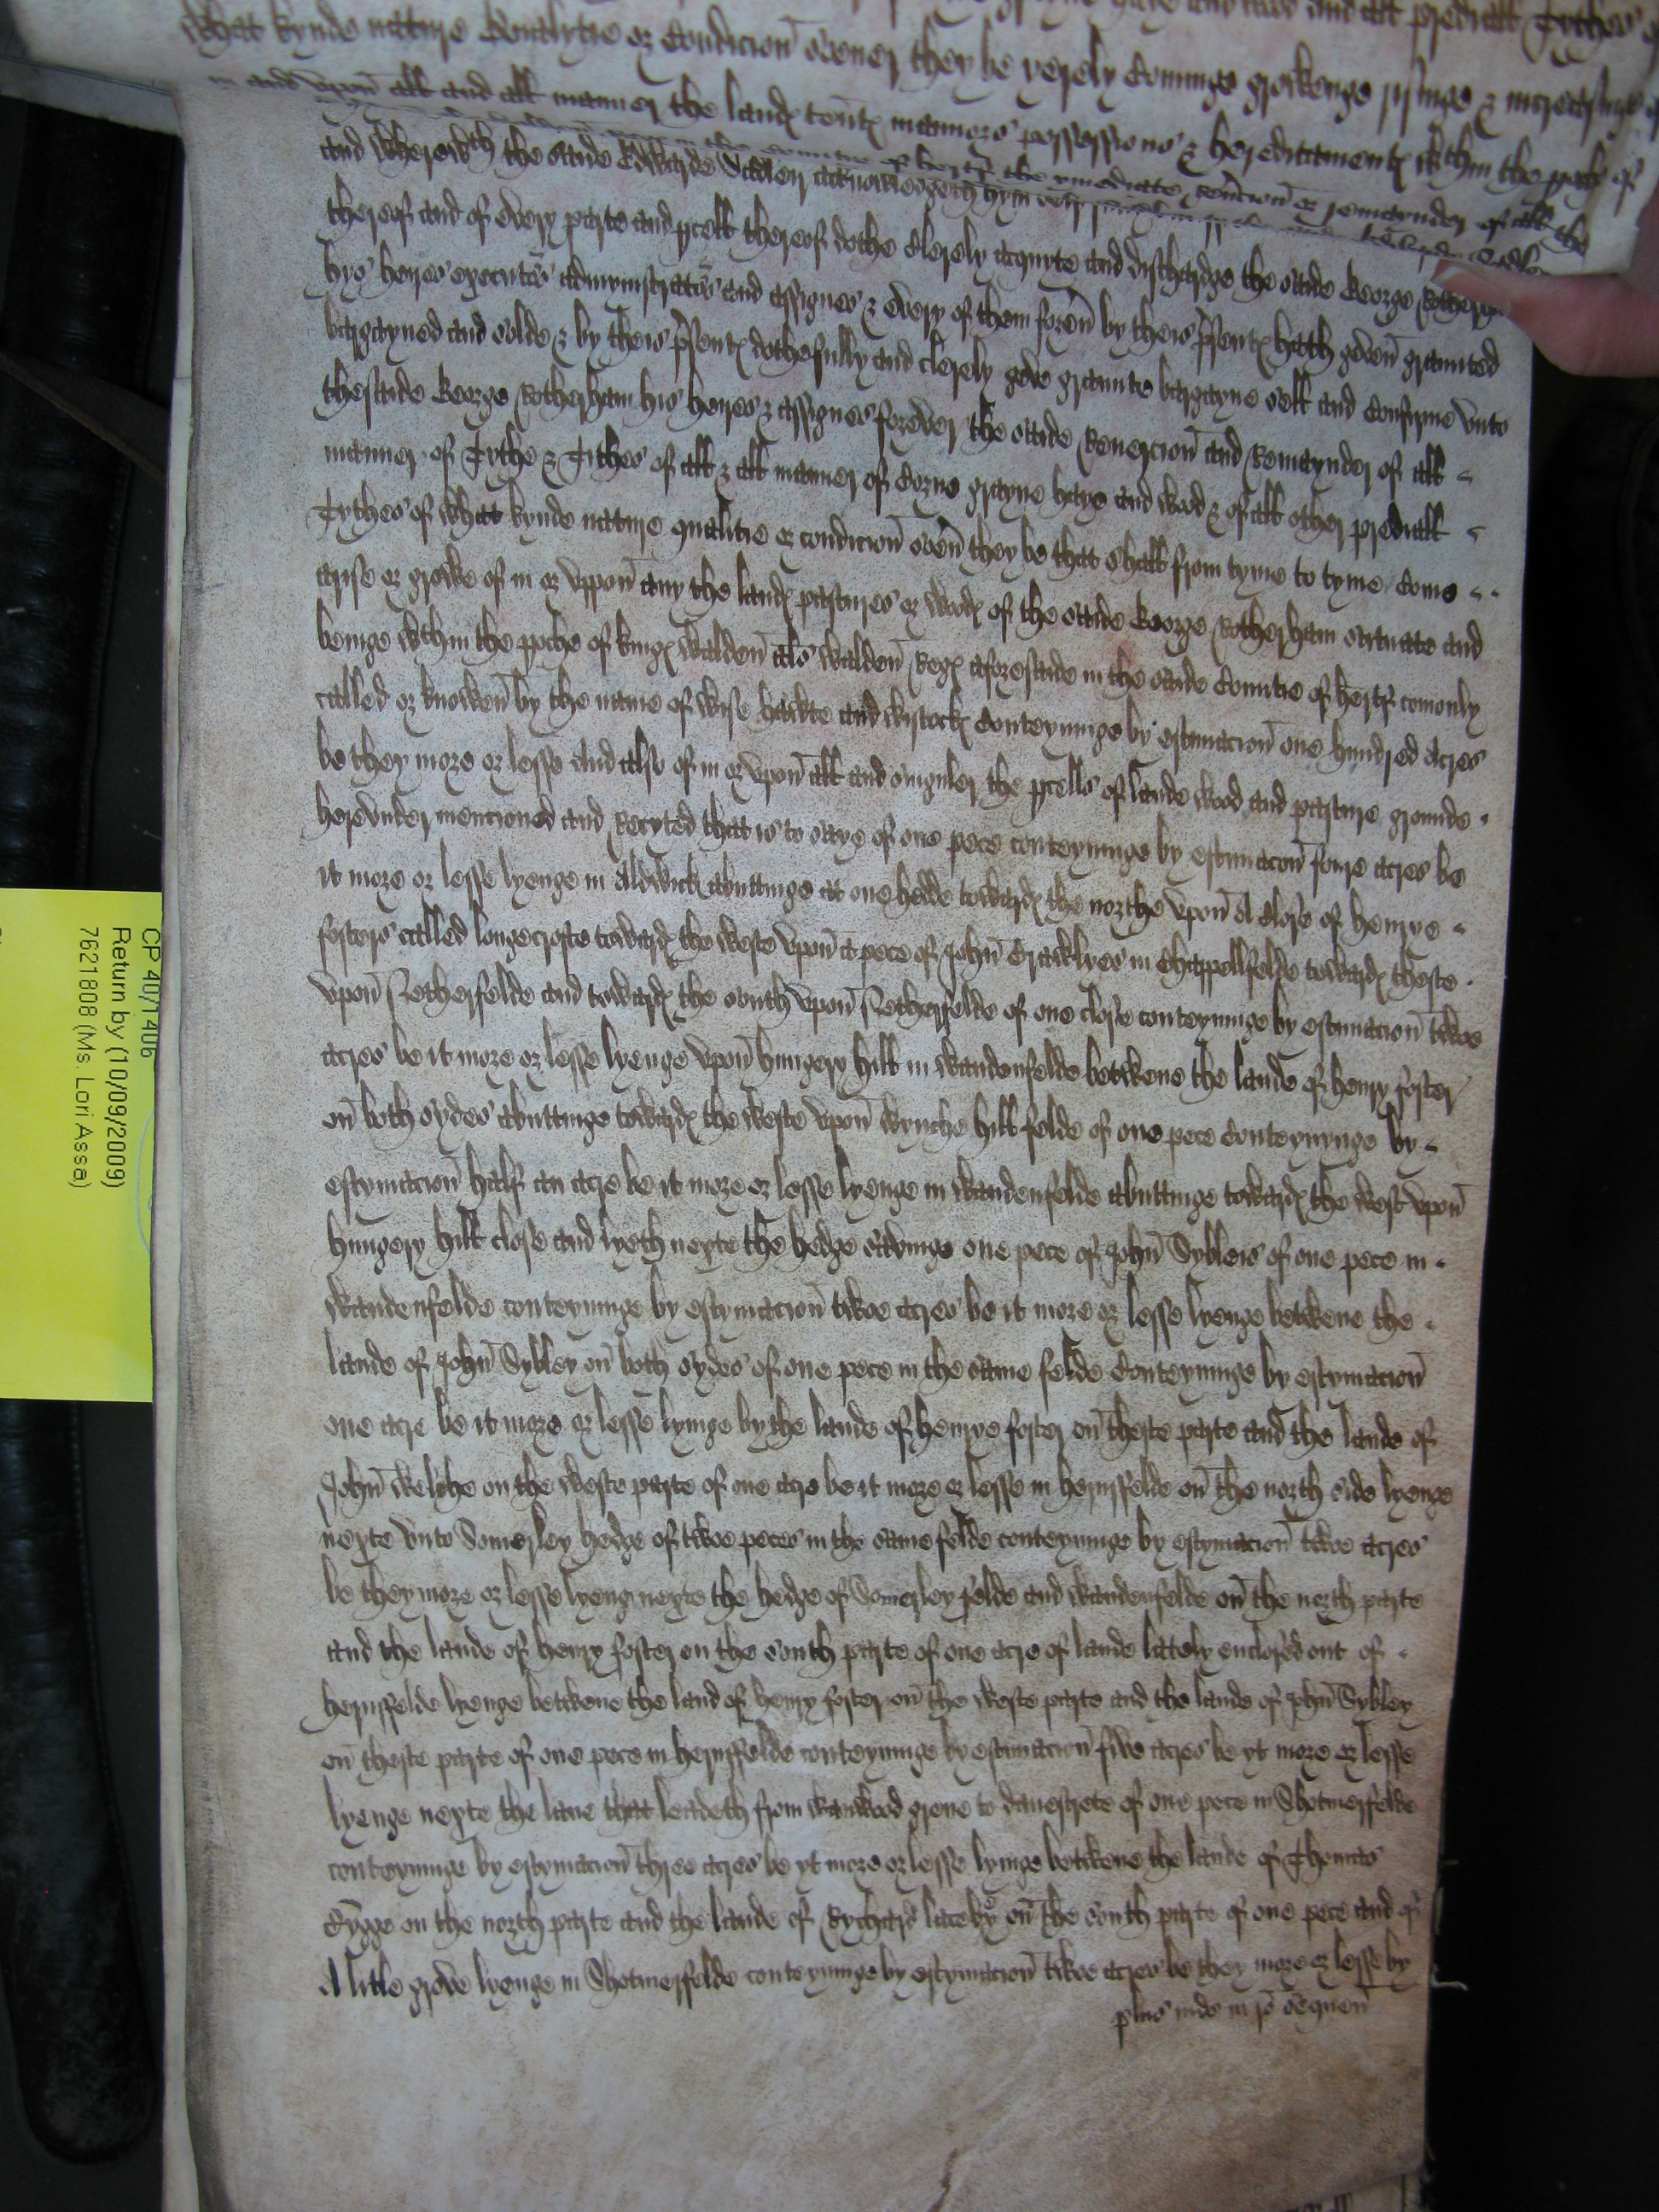 and all prediall Tythes
What kynde nature Conalytie or Condicion soever they be yerely Cominge growenge rysinge & increasinge
in and vpon all and all manner the landes tentes mannors possessions & hereditamentes within the of
in the Countie of hertf the ymediate revercion or remaynder of all the
and wherewth the saide Edwarde Sadler acknowledgeth hym
thereof and of every parte and pcell thereof dothe Clerely acquyte and dischardge the saide George Rotherham
hys heyres executors admynistrators and assignes & every of them forev by theis psentes hath geven graunted
bargayned and solde & by theis psentes dothe fully and clerely geve graunte bargayne sell and Confyrme vnto
the saide George Rotherham his heyres & assignes forever the saide Revercion and Remaynder of all
manner of Tythe & Tithes of all & all manner of Corne grayne haye and wood & of all other prediall
Tythes of what kynde nature qualitie or condicion soev they be that shall from tyme to tyme Come
arise or growe of in or vppon any the landes pastures or woodes of the saide George Rotherham scituate and
beinge within the pishe of kinges walden als walden Regis aforesaide in the saide Countie of hertf comonly
called or knowen by the name of wise hawte and wistockes Conteyninge by estimacion one hundred Acres
be they more or lesse And also of in or vpon all and singuler the pcells of lande wood and pasture grounde
herevnder mencioned and Recyted that is to saye of one pece conteyninge by estimacon foure acres be
it more or lesse lyenge in Aldwick abuttinge at one hedde towardes the northe vpon A Close of henrye
fosters called longecrofte towardes the weste vpon a pece of John Crawlyes in Chappellfelde towardes theste
vpon Netherfelde and towardes the south vpon Netherfelde of one close conteyninge by estimacion twoe
acres be it more or lesse lyenge vpon hungery hill in wandenfelde betwene the lande of henry foster
on both sydes abuttinge towardes the weste vpon wynche hill felde of one pece Conteynynge by
estymacion half an acre be it more or lesse lyenge in wandenfelde abuttinge towardes the west vpon
hungery hill close and lyeth nexte the hedge savinge one pece of John Sybleis of one pece in
wandenfelde conteyninge by estymacion twoe acres be it more or lesse lyenge betwene the
lande of John Sybley on both sydes of one pece in the same felde Conteyninge by estymacion
one acre be it more or lesse lyinge by the lande of henrye foster on theste parte and the lande of
John welche on the weste parte of one acre be it more or lesse in hernsfelde on the north side lyenge
nexte vnto Somerley hedge of twoe peces in the same felde conteyninge by estymacion twoe acres
be they more or lesse lyeng nexte the hedge of Somerley felde and wandenfelde on the north parte
and the lande of henry foster on the south parte of one acre of lande lately enclosed out of
hernsfelde lyenge betwene the land of henry foster on the weste parte and the lande of John Sybley
on theste parte of one pece in hernsfelde conteyninge by estimacion five acres be yt more or lesse
lyenge nexte the lane that leadeth from wanwood grene to danestrete of one pece in Shotmerfelde
conteyninge by estymacion three acres be yt more or lesse lyinge betwene the lande of Thomas
Rygge on the north parte and the lande of Rychard laceby on the south parte of one pece and of
A litle grove lyenge in Shotmerfelde conteyninge by estymacion twoe acres be they more or lesse by
plus inde in ro sequen
CP 40/1406
Return by (10/09/2009)
7621808 (Ms. Lori Assa)